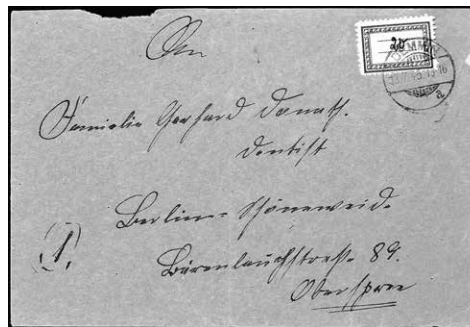 20
DEMMIN
15-16
a
An
Familie Gerhard Donath.
Dentist
Berlin-Schöneweid.
(1)
Bärenlauchstraß. 89.
Oberspree